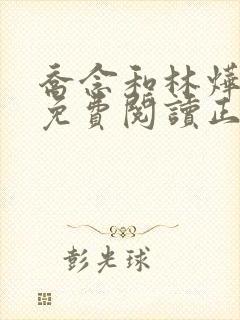 喬念和林燁
免費閱讀正
彭光球